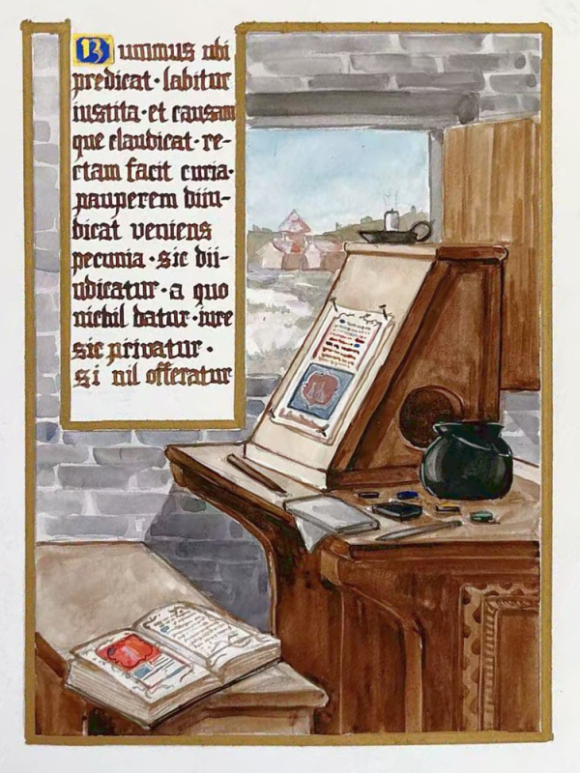 Nummus ubi
predicat·labitur
iustita·et causam
que claudicat·re-
ctam facit curia·
pauperem diiu-
dicat veniens
pecunia·sic dii-
udicatur·a quo
nichil datur·iure
sic privatur·
si nil offeratur